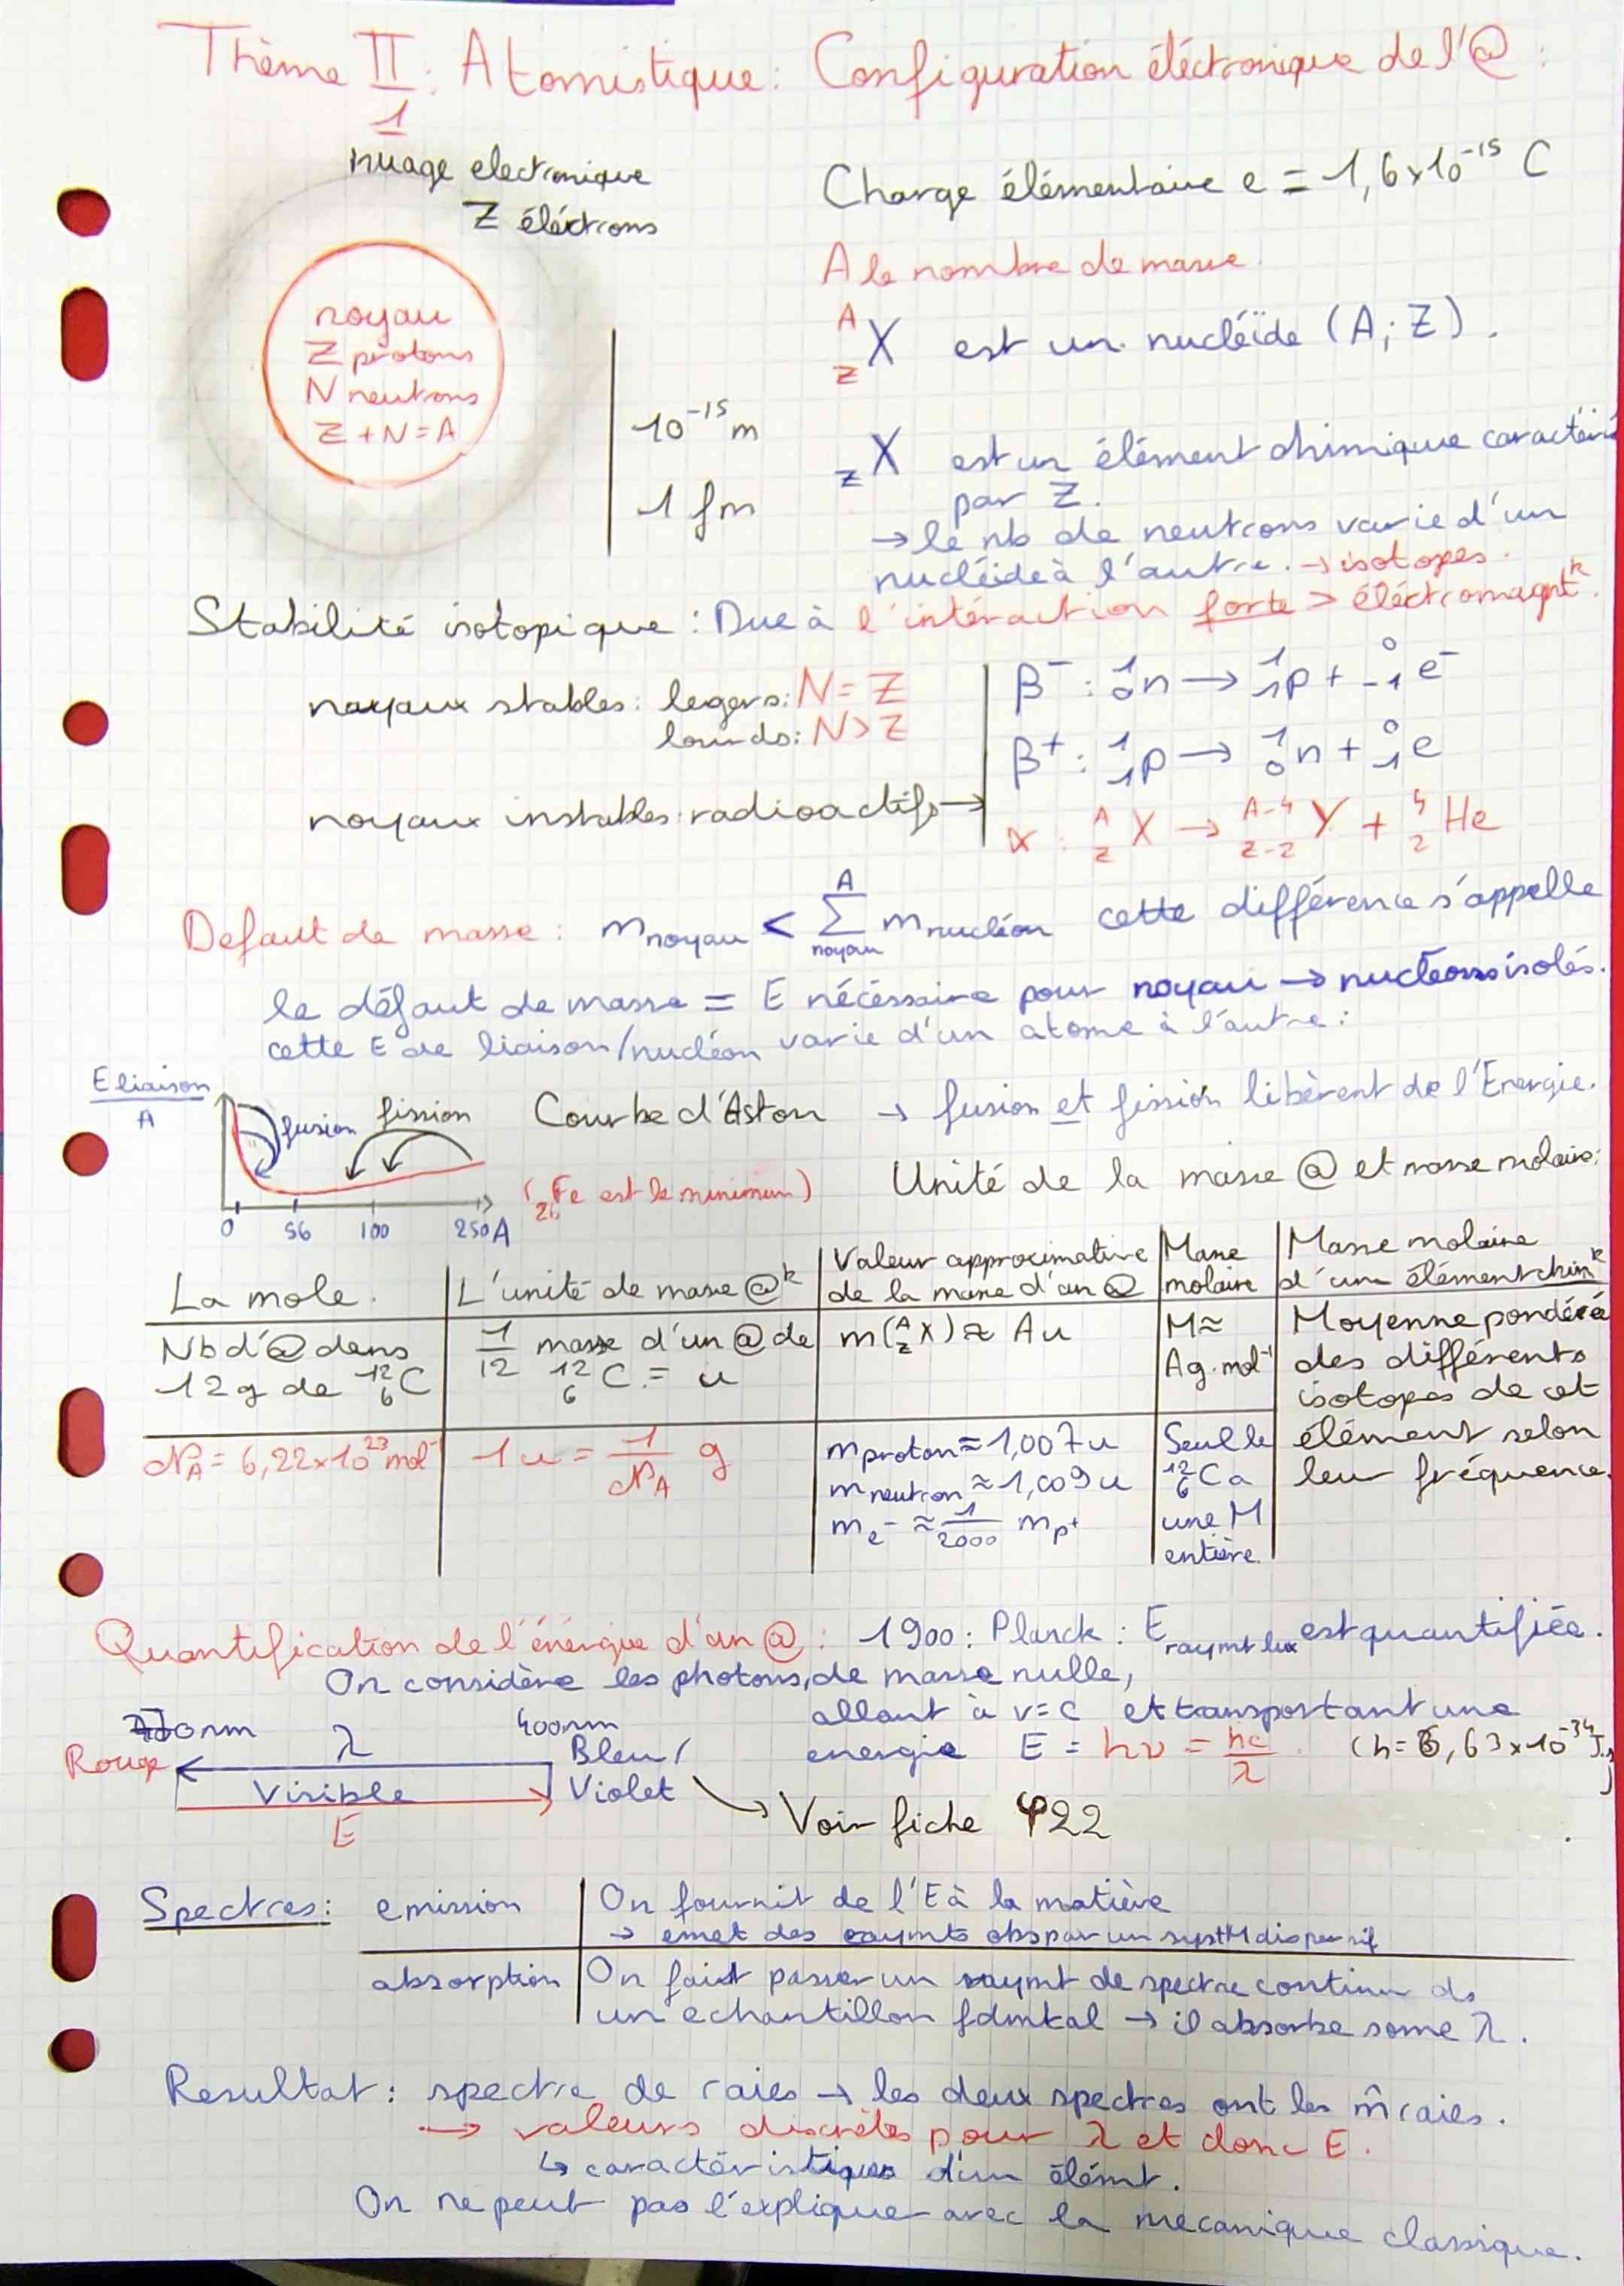 Thème II : Atomistique : Configuration éléctronique de l'@ :
1
nuage electronique
Z éléctrons
noyau
Z protons
N neutrons
Z + N = A
10⁻¹⁵ m
1 fm
Charge élémentaire e = 1,6 x 10⁻¹⁵ C
A le nombre de masse.
ᴬ_Z X est un nucléïde (A ; Z).
_Z X est un élément chimique caractéri
par Z.
→ le nb de neutrons varie d'un
nucléide à l'autre. → isotopes.
Stabilité isotopique : Due à l'intéraction forte > éléctromagntᵏ.
noyaux stables : legers : N = Z
lourds : N > Z
noyaux instables : radioactifs →
β⁻ : ¹₀n → ¹₁p + ⁰₋₁e⁻
β⁺ : ¹₁p → ¹₀n + ⁰₁e
α : ᴬ_Z X → ᴬ⁻⁴_Z-2 Y + ⁴₂He
Defaut de masse : m noyau < A Σ noyau m nucléon cette différence s'appelle
le défaut de masse = E nécéssaire pour noyau → nucléons isolés.
cette E de liaison/nucléon varie d'un atome à l'autre :
E liaison
A
fusion fission
0 56 100 250 A
Courbe d'Aston → fusion et fission libèrent de l'Energie.
(₂₆Fe est le minimum)
Unité de la masse @ et masse molaire :
La mole.
L'unité de masse @ᵏ
Valeur approximative
de la masse d'un @
Masse
molaire
Masse molaire
d'un élément chimᵏ
Nb d'@ dans
12 g de ¹²₆C
1/12 masse d'un @ de
¹²₆C = u
m(ᴬ_Z X) ≈ A u
M ≈
A g.mol⁻¹
Moyenne pondéré
des différents
isotopes de cet
élément selon
leur fréquence.
N_A = 6,22 x 10²³ mol⁻
1 u = 1/N_A g
m proton ≈ 1,007 u
m neutron ≈ 1,009 u
m e⁻ ≈ 1/2000 m p⁺
Seul le
¹²₆C a
une M
entière.
Quantification de l'énérgie d'un @ : 1900 : Planck : E raymt lux est quantifiée.
On considère les photons, de masse nulle,
allant à v = c et transportant une
energie E = hν = hc/λ (h = 6,63 x 10⁻³⁴ J.s)
nm λ 400nm
Rouge Bleu/
Visible Violet
E
→ Voir fiche φ22
Spectres : emission
On fournit de l'E à la matière
→ emet des raymts obs par un systM dispersif
absorption
On fait passer un raymt de spectre continu ds
un echantillon fdmtal → il absorbe some λ.
Resultat : spectre de raies → les deux spectres ont les m̂ raies.
→ valeurs discrètes pour λ et donc E.
↳ caractéristiques d'un élémt.
On ne peut pas l'expliquer avec la mécanique classique.